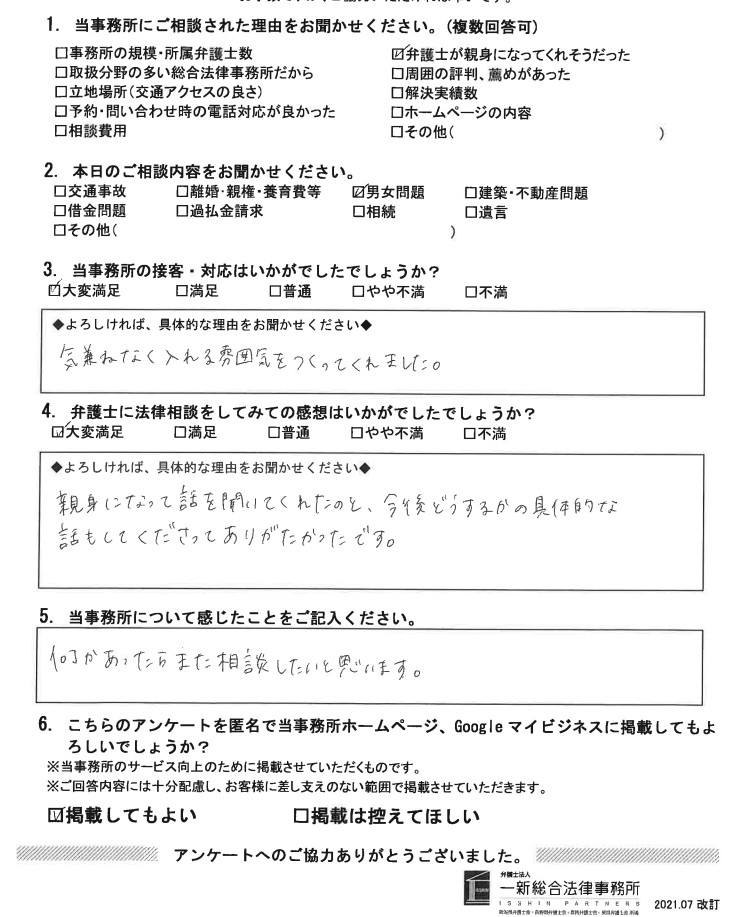 1. 当事務所にご相談された理由をお聞かせください。(複数回答可)
□事務所の規模・所属弁護士数 ☑弁護士が親身になってくれそうだった
□取扱分野の多い総合法律事務所だから □周囲の評判、薦めがあった
□立地場所(交通アクセスの良さ) □解決実績数
□予約・問い合わせ時の電話対応が良かった □ホームページの内容
□相談費用 □その他( )
2. 本日のご相談内容をお聞かせください。
□交通事故 □離婚・親権・養育費等 ☑男女問題 □建築・不動産問題
□借金問題 □過払金請求 □相続 □遺言
□その他( )
3. 当事務所の接客・対応はいかがでしたでしょうか?
☑大変満足 □満足 □普通 □やや不満 □不満
◆よろしければ、具体的な理由をお聞かせください◆
気兼ねなく入れる雰囲気をつくってくれました。
4. 弁護士に法律相談をしてみての感想はいかがでしたでしょうか?
☑大変満足 □満足 □普通 □やや不満 □不満
◆よろしければ、具体的な理由をお聞かせください◆
親身になって話を聞いてくれたのと、今後どうするかの具体的な
話もしてくださってありがたかったです。
5. 当事務所について感じたことをご記入ください。
何かあったらまた相談したいと思います。
6. こちらのアンケートを匿名で当事務所ホームページ、Google マイビジネスに掲載してもよ
ろしいでしょうか?
※当事務所のサービス向上のために掲載させていただくものです。
※ご回答内容には十分配慮し、お客様に差し支えのない範囲で掲載させていただきます。
☑掲載してもよい □掲載は控えてほしい
アンケートへのご協力ありがとうございました。
弁護士法人
一新総合法律事務所
ISSHIN PARTNERS
2021.07 改訂